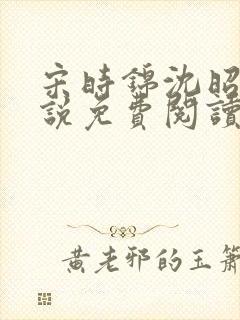 宋時錦沈昭
說免費閱讀
黃老邪的玉簫